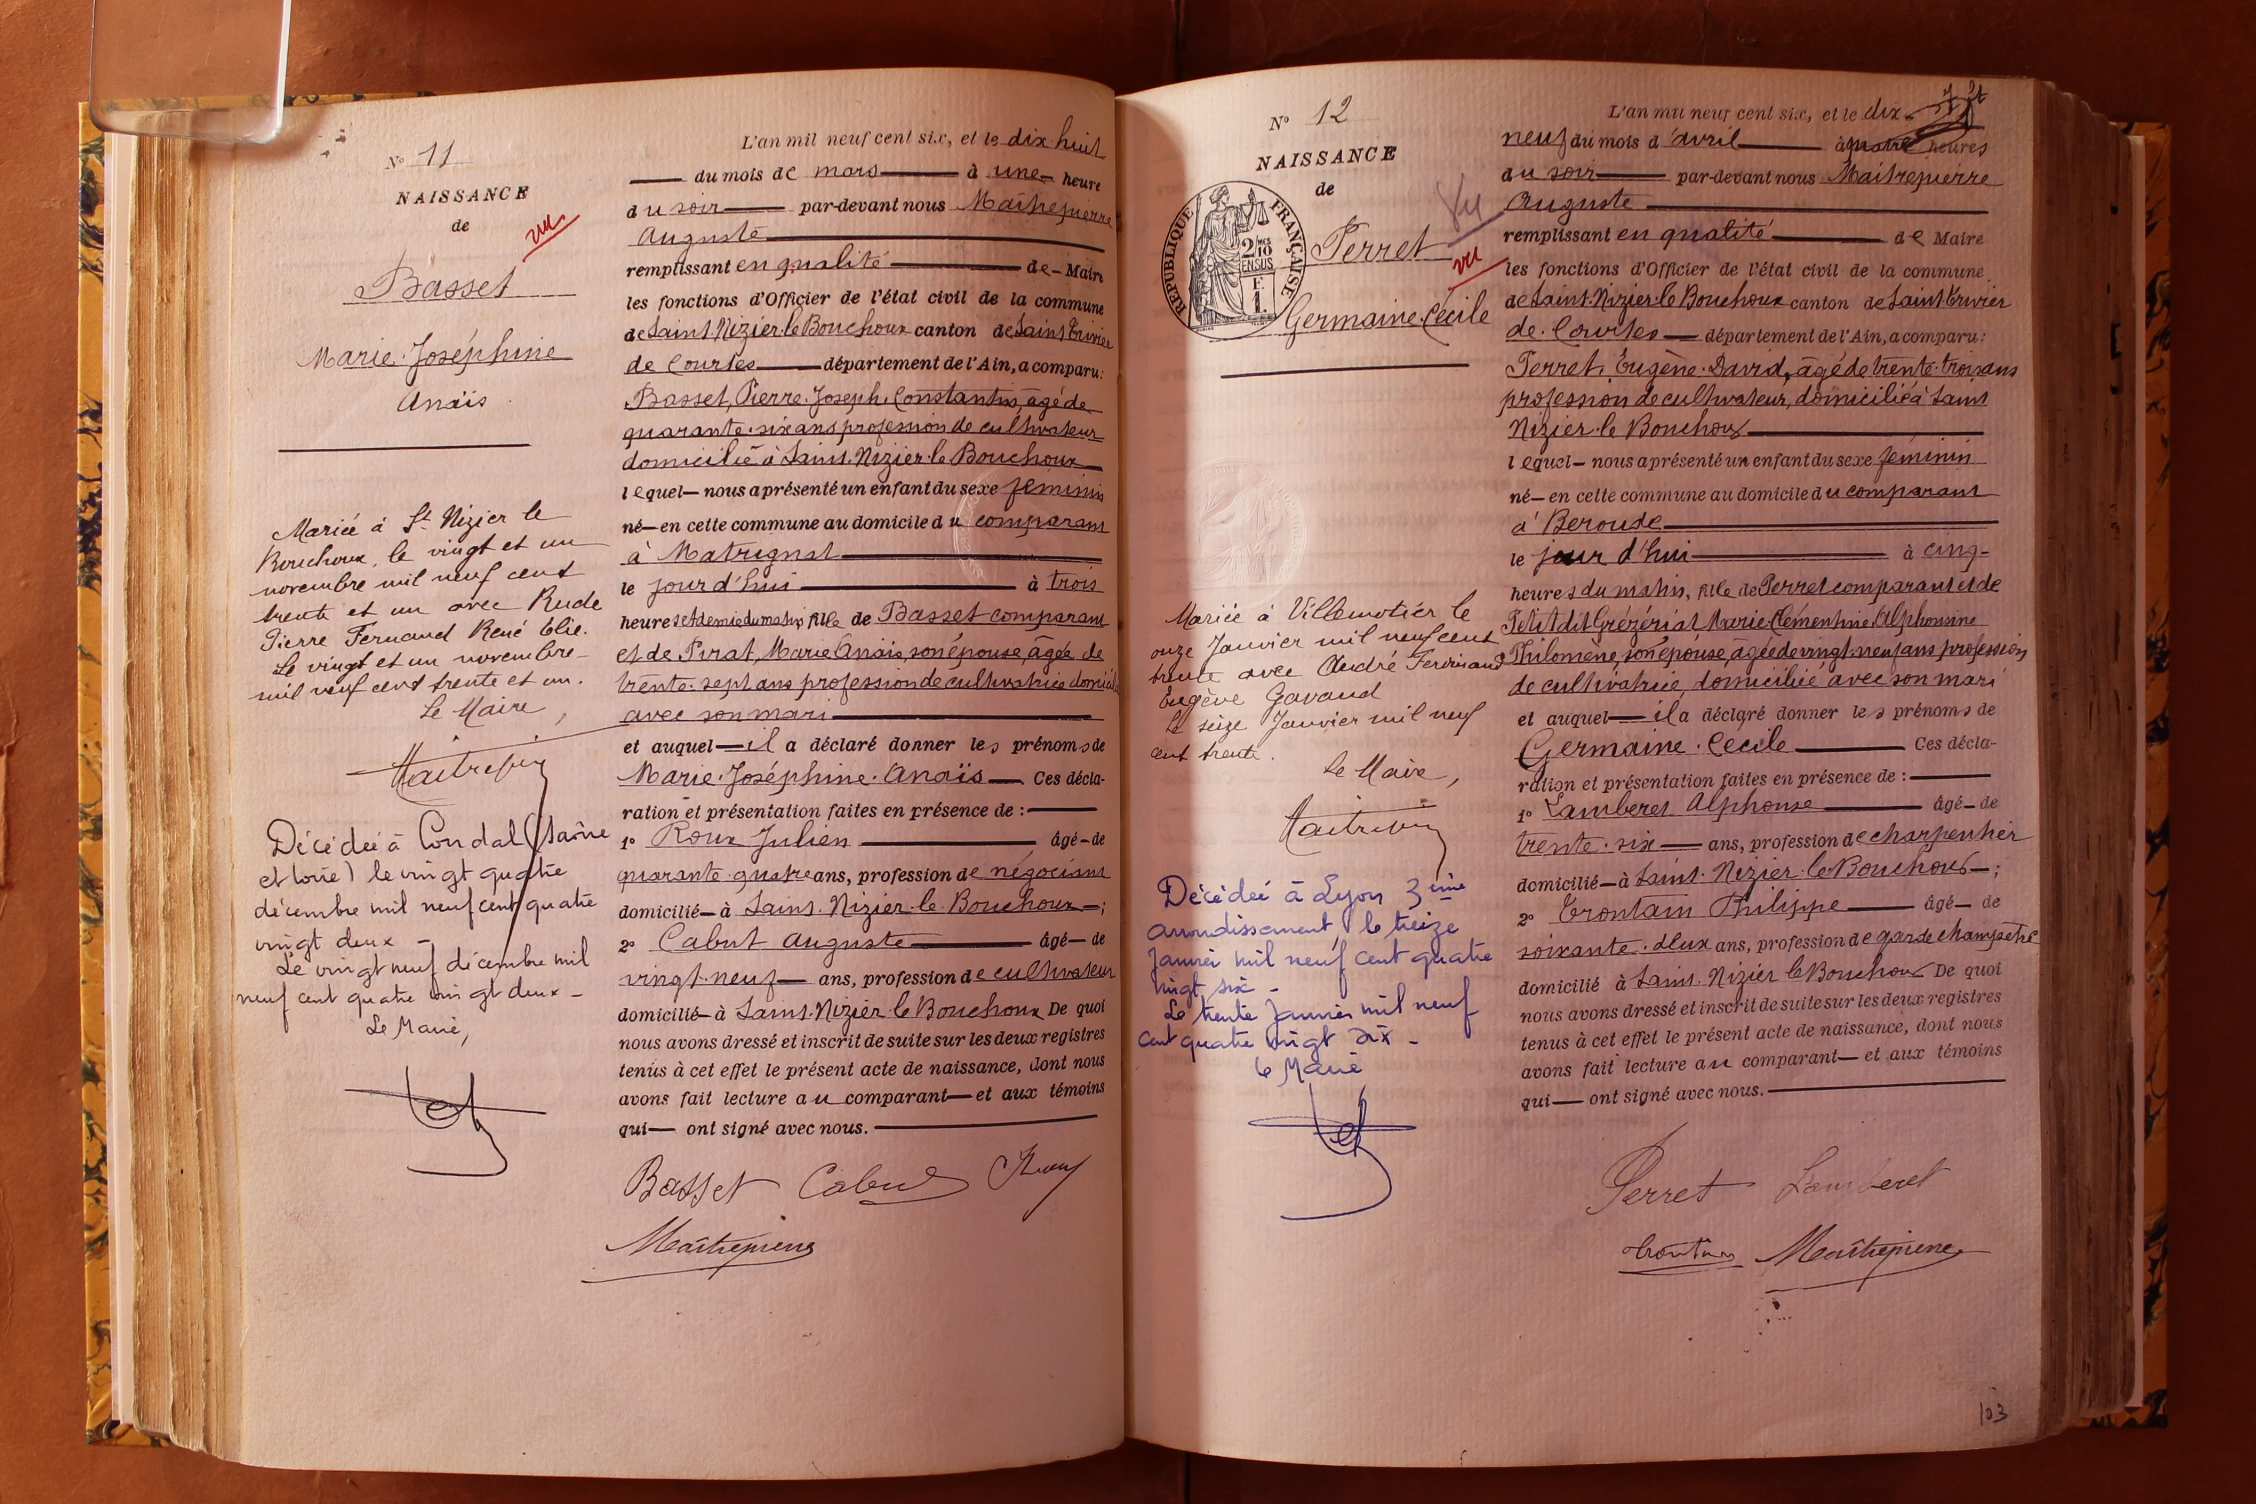 N° 11
NAISSANCE
de
vu
Basset
Marie Joséphine
Anaïs
Mariée à St Nizier le
Bouchoux, le vingt et un
novembre mil neuf cent
trente et un avec Rude
Pierre Fernand René Elie.
Le vingt et un novembre
mil neuf cent trente et un.
Le Maire,
Décédée à Condal (Saône
et Loire) le vingt quatre
décembre mil neuf cent quatre
vingt deux -
Le vingt neuf décembre mil
neuf cent quatre vingt deux -
Le Maire,
L'an mil neuf cent six, et le dix huit
du mois de mars à une heure
du soir par-devant nous Maitrepierre
Auguste
remplissant en qualité de Maire
les fonctions d'Officier de l'état civil de la commune
de Saint Nizier le Bouchoux canton de Saint Trivier
de Courtes département de l'Ain, a comparu:
Basset, Pierre Joseph Constantin, âgé de
quarante-six ans profession de cultivateur
domicilié à Saint Nizier le Bouchoux
lequel nous a présenté un enfant du sexe féminin
né en cette commune au domicile du comparant
à Matrignat
le jour d'hui à trois
heures et demie du matin, fille de Basset comparant
et de Pirat, Marie Anaïs, son épouse, âgée de
trente-sept ans profession de cultivatrice domiciliée
avec son mari
et auquel il a déclaré donner les prénoms de
Marie Joséphine Anaïs Ces décla-
ration et présentation faites en présence de :
1° Roux Julien âgé de
quarante-quatre ans, profession de négociant
domicilié à Saint Nizier le Bouchoux ;
2° Cabut Auguste âgé de
vingt-neuf ans, profession de cultivateur
domicilié à Saint Nizier le Bouchoux De quoi
nous avons dressé et inscrit de suite sur les deux registres
tenus à cet effet le présent acte de naissance, dont nous
avons fait lecture au comparant et aux témoins
qui ont signé avec nous.
Basset Cabut Roux
Maitrepierre
N° 12
NAISSANCE
de
vu
vu
RÉPUBLIQUE FRANÇAISE
2/10
EN SUS
E
1.
Perret
Germaine Cécile
Mariée à Villemotier le
onze Janvier mil neuf cent
trente avec André Ferdinand
Eugène Gavand
Le seize Janvier mil neuf
cent trente.
Le Maire,
Décédée à Lyon 3ème
arrondissement le treize
Janvier mil neuf cent quatre
vingt six -
Le trente Janvier mil neuf
cent quatre vingt dix -
Le Maire
L'an mil neuf cent six, et le dix-
neuf du mois d'avril à quatre heures
du soir par-devant nous Maitrepierre
Auguste
remplissant en qualité de Maire
les fonctions d'Officier de l'état civil de la commune
de Saint Nizier le Bouchoux canton de Saint Trivier
de Courtes département de l'Ain, a comparu:
Perret, Eugène David, âgé de trente-trois ans
profession de cultivateur, domicilié à Saint
Nizier le Bouchoux
lequel nous a présenté un enfant du sexe féminin
né en cette commune au domicile du comparant
à Beroude
le jour d'hui à cinq
heures du matin, fille de Perret comparant et de
Petit dit Grézériat Marie Clémentine Alphonsine
Philomène, son épouse, âgée de vingt-neuf ans profession
de cultivatrice, domiciliée avec son mari
et auquel il a déclaré donner les prénoms de
Germaine Cécile Ces décla-
ration et présentation faites en présence de :
1° Lamberet Alphonse âgé de
trente-six ans, profession de charpentier
domicilié à Saint Nizier le Bouchoux ;
2° Trontain Philippe âgé de
soixante-deux ans, profession de garde champêtre
domicilié à Saint Nizier le Bouchoux De quoi
nous avons dressé et inscrit de suite sur les deux registres
tenus à cet effet le présent acte de naissance, dont nous
avons fait lecture au comparant et aux témoins
qui ont signé avec nous.
Perret Lamberet
Trontain Maitrepierre
103